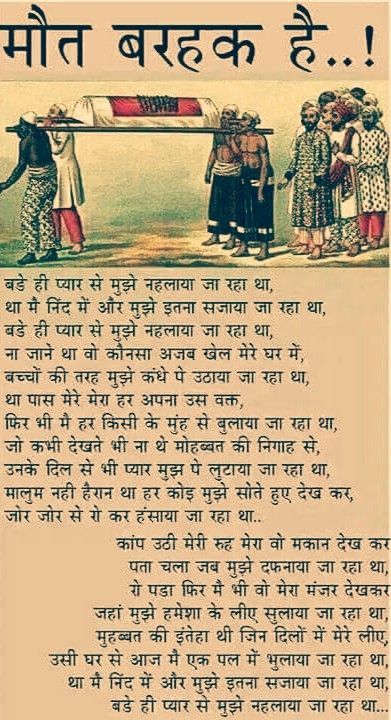 मौत बरहक है..!
बडे ही प्यार से मुझे नहलाया जा रहा था,
था मै निंद में और मुझे इतना सजाया जा रहा था,
बडे ही प्यार से मुझे नहलाया जा रहा था,
ना जाने था वो कौनसा अजब खेल मेरे घर में,
बच्चों की तरह मुझे कंधे पे उठाया जा रहा था,
था पास मेरे मेरा हर अपना उस वक्त,
फिर भी मै हर किसी के मुंह से बुलाया जा रहा था,
जो कभी देखते भी ना थे मोहब्बत की निगाह से,
उनके दिल से भी प्यार मुझ पे लुटाया जा रहा था,
मालुम नही हैरान था हर कोइ मुझे सोते हुए देख कर,
जोर जोर से रो कर हंसाया जा रहा था..
कांप उठी मेरी रुह मेरा वो मकान देख कर
पता चला जब मुझे दफनाया जा रहा था,
रो पडा फिर मै भी वो मेरा मंजर देखकर
जहां मुझे हमेशा के लीए सुलाया जा रहा था,
मुहब्बत की इंतेहा थी जिन दिलों में मेरे लीए,
उसी घर से आज मै एक पल में भुलाया जा रहा था,
था मै निंद में और मुझे इतना सजाया जा रहा था,
बडे ही प्यार से मुझे नहलाया जा रहा था...